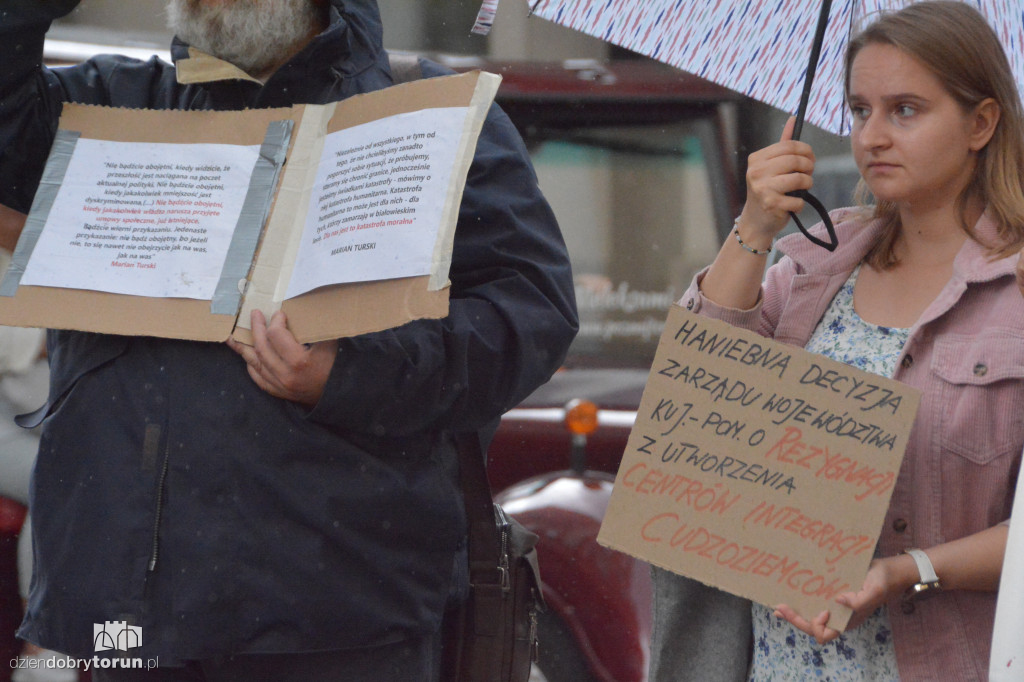 "Nie bądźcie obojętni, kiedy widzicie, że
przeszłość jest naciągana na poczet
aktualnej polityki. Nie bądźcie obojętni,
kiedy jakakolwiek mniejszość jest
dyskryminowana. Nie bądźcie obojętni,
kiedy jakakolwiek władza narusza przyjęte
umowy społeczne, już istniejące.
Bądźcie wierni przykazaniu. Jedenaste
przykazanie: nie bądź obojętny. Bo jeżeli
nie, to się nawet nie obejrzycie jak na was,
jak na was"
Marian Turski
"Niezależnie od wszystkiego, w tym od
tego, że nie chcielibyśmy zanadto
pogorszyć sobie sytuacji, że próbujemy,
staramy się chronić granice, jednocześnie
jesteśmy świadkami katastrofy - mówimy o
niej katastrofa humanitarna. Katastrofa
humanitarna to może jest dla nich - dla
tych, którzy zamarzają w białowieskim
lesie. Dla nas jest to katastrofa moralna"
MARIAN TURSKI
HANIEBNA DECYZJA
ZARZĄDU WOJEWÓDZTWA
KUJ.-POM. O REZYGNACJI
Z UTWORZENIA
CENTRÓW INTEGRACJI
CUDZOZIEMCÓW
dziendobrytorun.pl